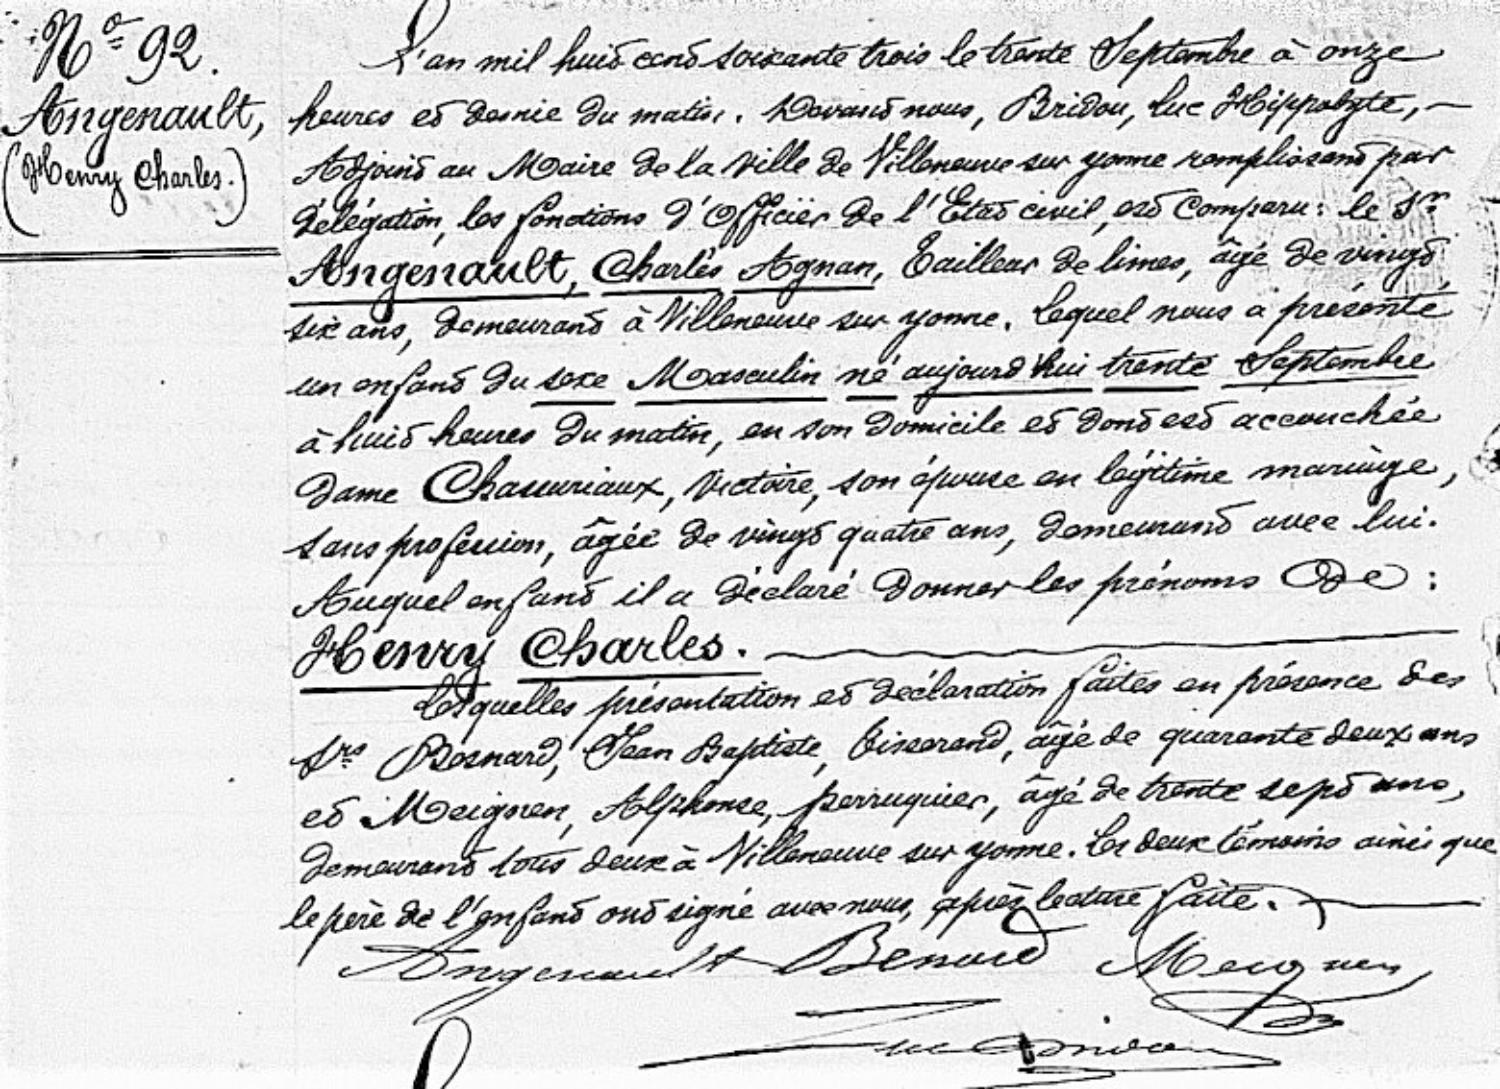 N° 92.
Angenault,
(Henry Charles.)
L'an mil huit cent soixante trois le trente Septembre à onze
heures et demie du matin. Devant nous, Bridou, Luc Hippolyte,
Adjoint au Maire de la ville de Villeneuve sur yonne remplissant par
délégation, les fonctions d'Officier de l'Etat civil, est Comparu : le Sr
Angenault, Charles Agnan, Tailleur de limes, âgé de vingt
six ans, demeurant à Villeneuve sur yonne. Lequel nous a présenté
un enfant du sexe Masculin né aujourd'hui trente Septembre
à huit heures du matin, en son domicile et dont est accouchée
Dame Chauvriaux, Victoire, son épouse en légitime mariage,
sans profession, âgée de vingt quatre ans, demeurant avec lui.
Auquel enfant il a déclaré donner les prénoms de :
Henry Charles.
Lesquelles présentation et déclaration faites en présence des
Srs Besnard, Jean Baptiste, Tisserand, âgé de quarante deux ans
et Meignen, Alphonse, perruquier, âgé de trente sept ans,
demeurant tous deux à Villeneuve sur yonne. Les deux témoins ainsi que
le père de l'enfant ont signé avec nous, après lecture faite.
Angenault Benard Meignen
Luc Bridou